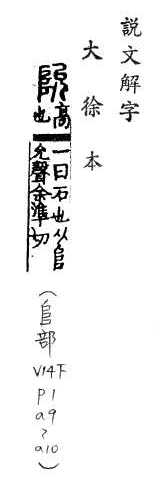 説文解字
大徐本
阭
高也
一曰石也从𨸏
允聲余準切
(𨸏部
V14下
P1
a9
~
a10)